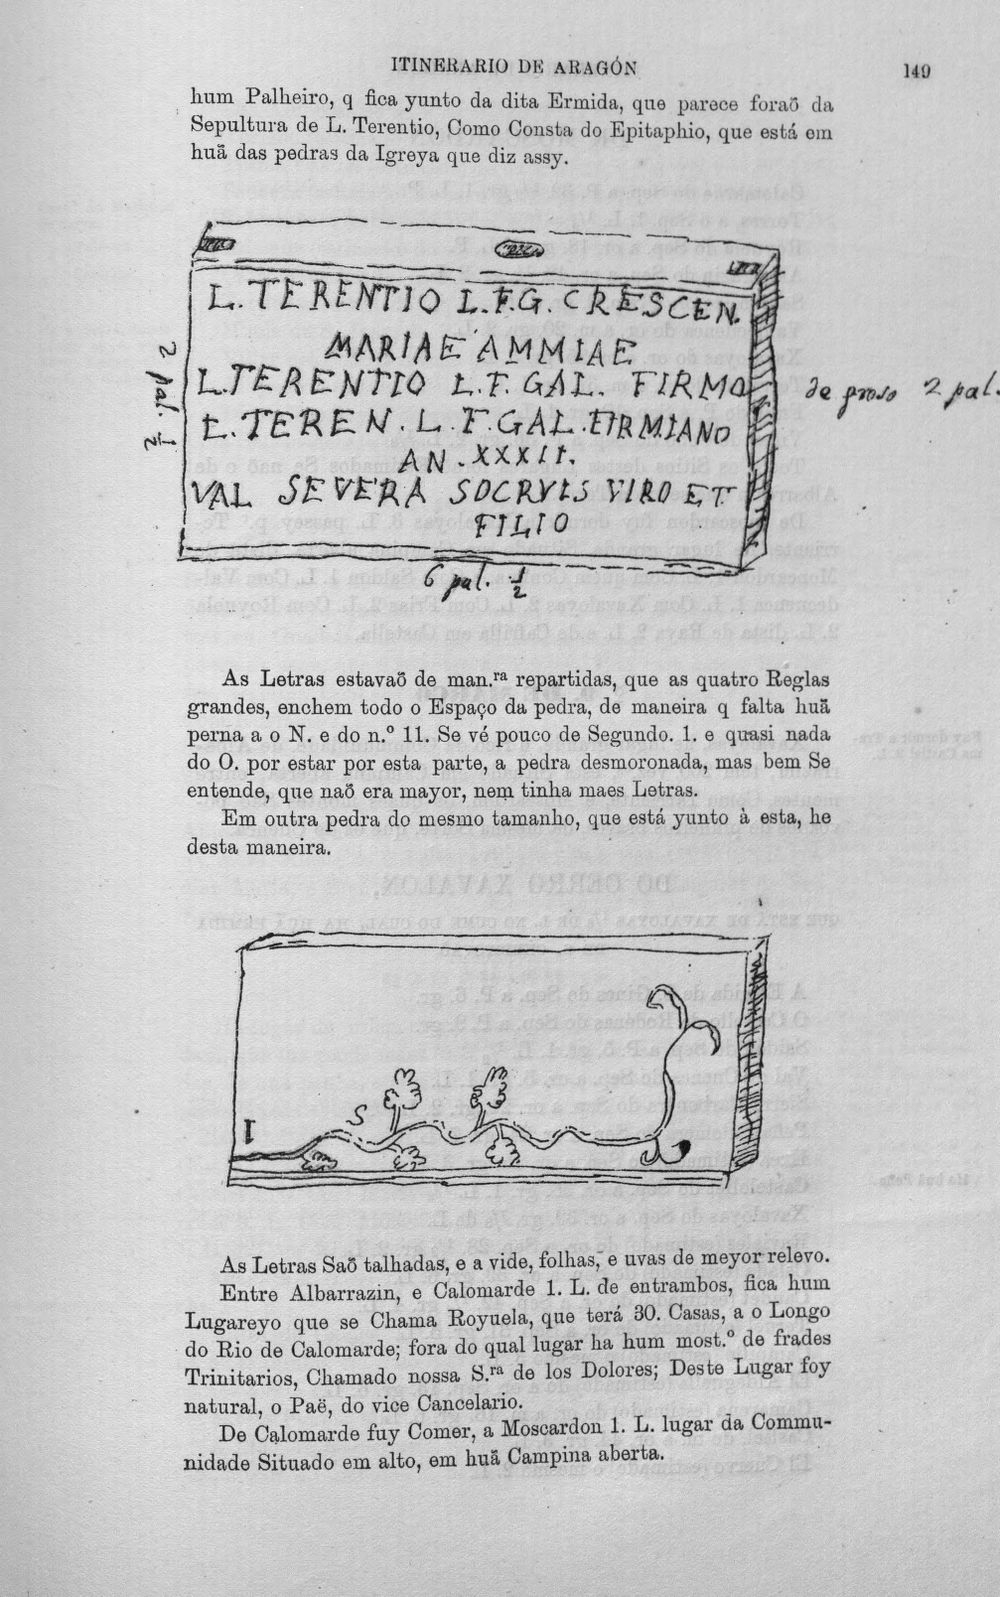 ITINERARIO DE ARAGÓN
149
hum Palheiro, q fica yunto da dita Ermida, que parece foraõ da
Sepultura de L. Terentio, Como Consta do Epitaphio, que está em
huã das pedras da Igreya que diz assy.
L. TERENTIO L.F.G. CRESCEN.
MARIAE AMMIAE
L. TERENTIO L. F. GAL. FIRMO
L. TEREN. L. F. GAL. FIRMIANO
AN. XXXII.
VAL SEVERA SOCRVIS VIRO ET
FILIO
2 pal. 1/2
de groso 2 pal.
6 pal. 1/2
As Letras estavaõ de man.ra repartidas, que as quatro Reglas
grandes, enchem todo o Espaço da pedra, de maneira q falta huã
perna a o N. e do n.º 11. Se vé pouco de Segundo. 1. e quasi nada
do O. por estar por esta parte, a pedra desmoronada, mas bem Se
entende, que naõ era mayor, nem tinha maes Letras.
Em outra pedra do mesmo tamanho, que está yunto à esta, he
desta maneira.
S
I
As Letras Saõ talhadas, e a vide, folhas, e uvas de meyor relevo.
Entre Albarrazin, e Calomarde 1. L. de entrambos, fica hum
Lugareyo que se Chama Royuela, que terá 30. Casas, a o Longo
do Rio de Calomarde; fora do qual lugar ha hum most.º de frades
Trinitarios, Chamado nossa S.ra de los Dolores; Deste Lugar foy
natural, o Paë, do vice Cancelario.
De Calomarde fuy Comer, a Moscardon 1. L. lugar da Commu-
nidade Situado em alto, em huã Campina aberta.